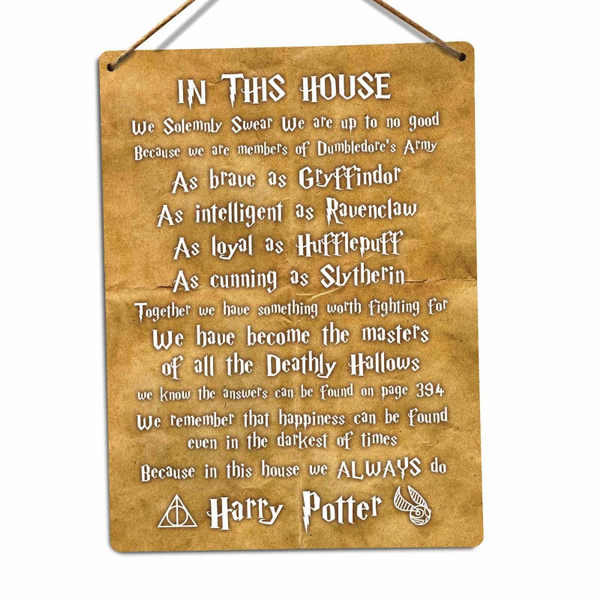 IN THIS HOUSE
We Solemnly Swear We are up to no good
Because we are members of Dumbledore's Army
As brave as Gryffindor
As intelligent as Ravenclaw
As loyal as Hufflepuff
As cunning as Slytherin
Together we have something worth fighting for
We have become the masters
of all the Deathly Hallows
we know the answers can be found on page 394
We remember that happiness can be found
even in the darkest of times
Because in this house we ALWAYS do
Harry Potter